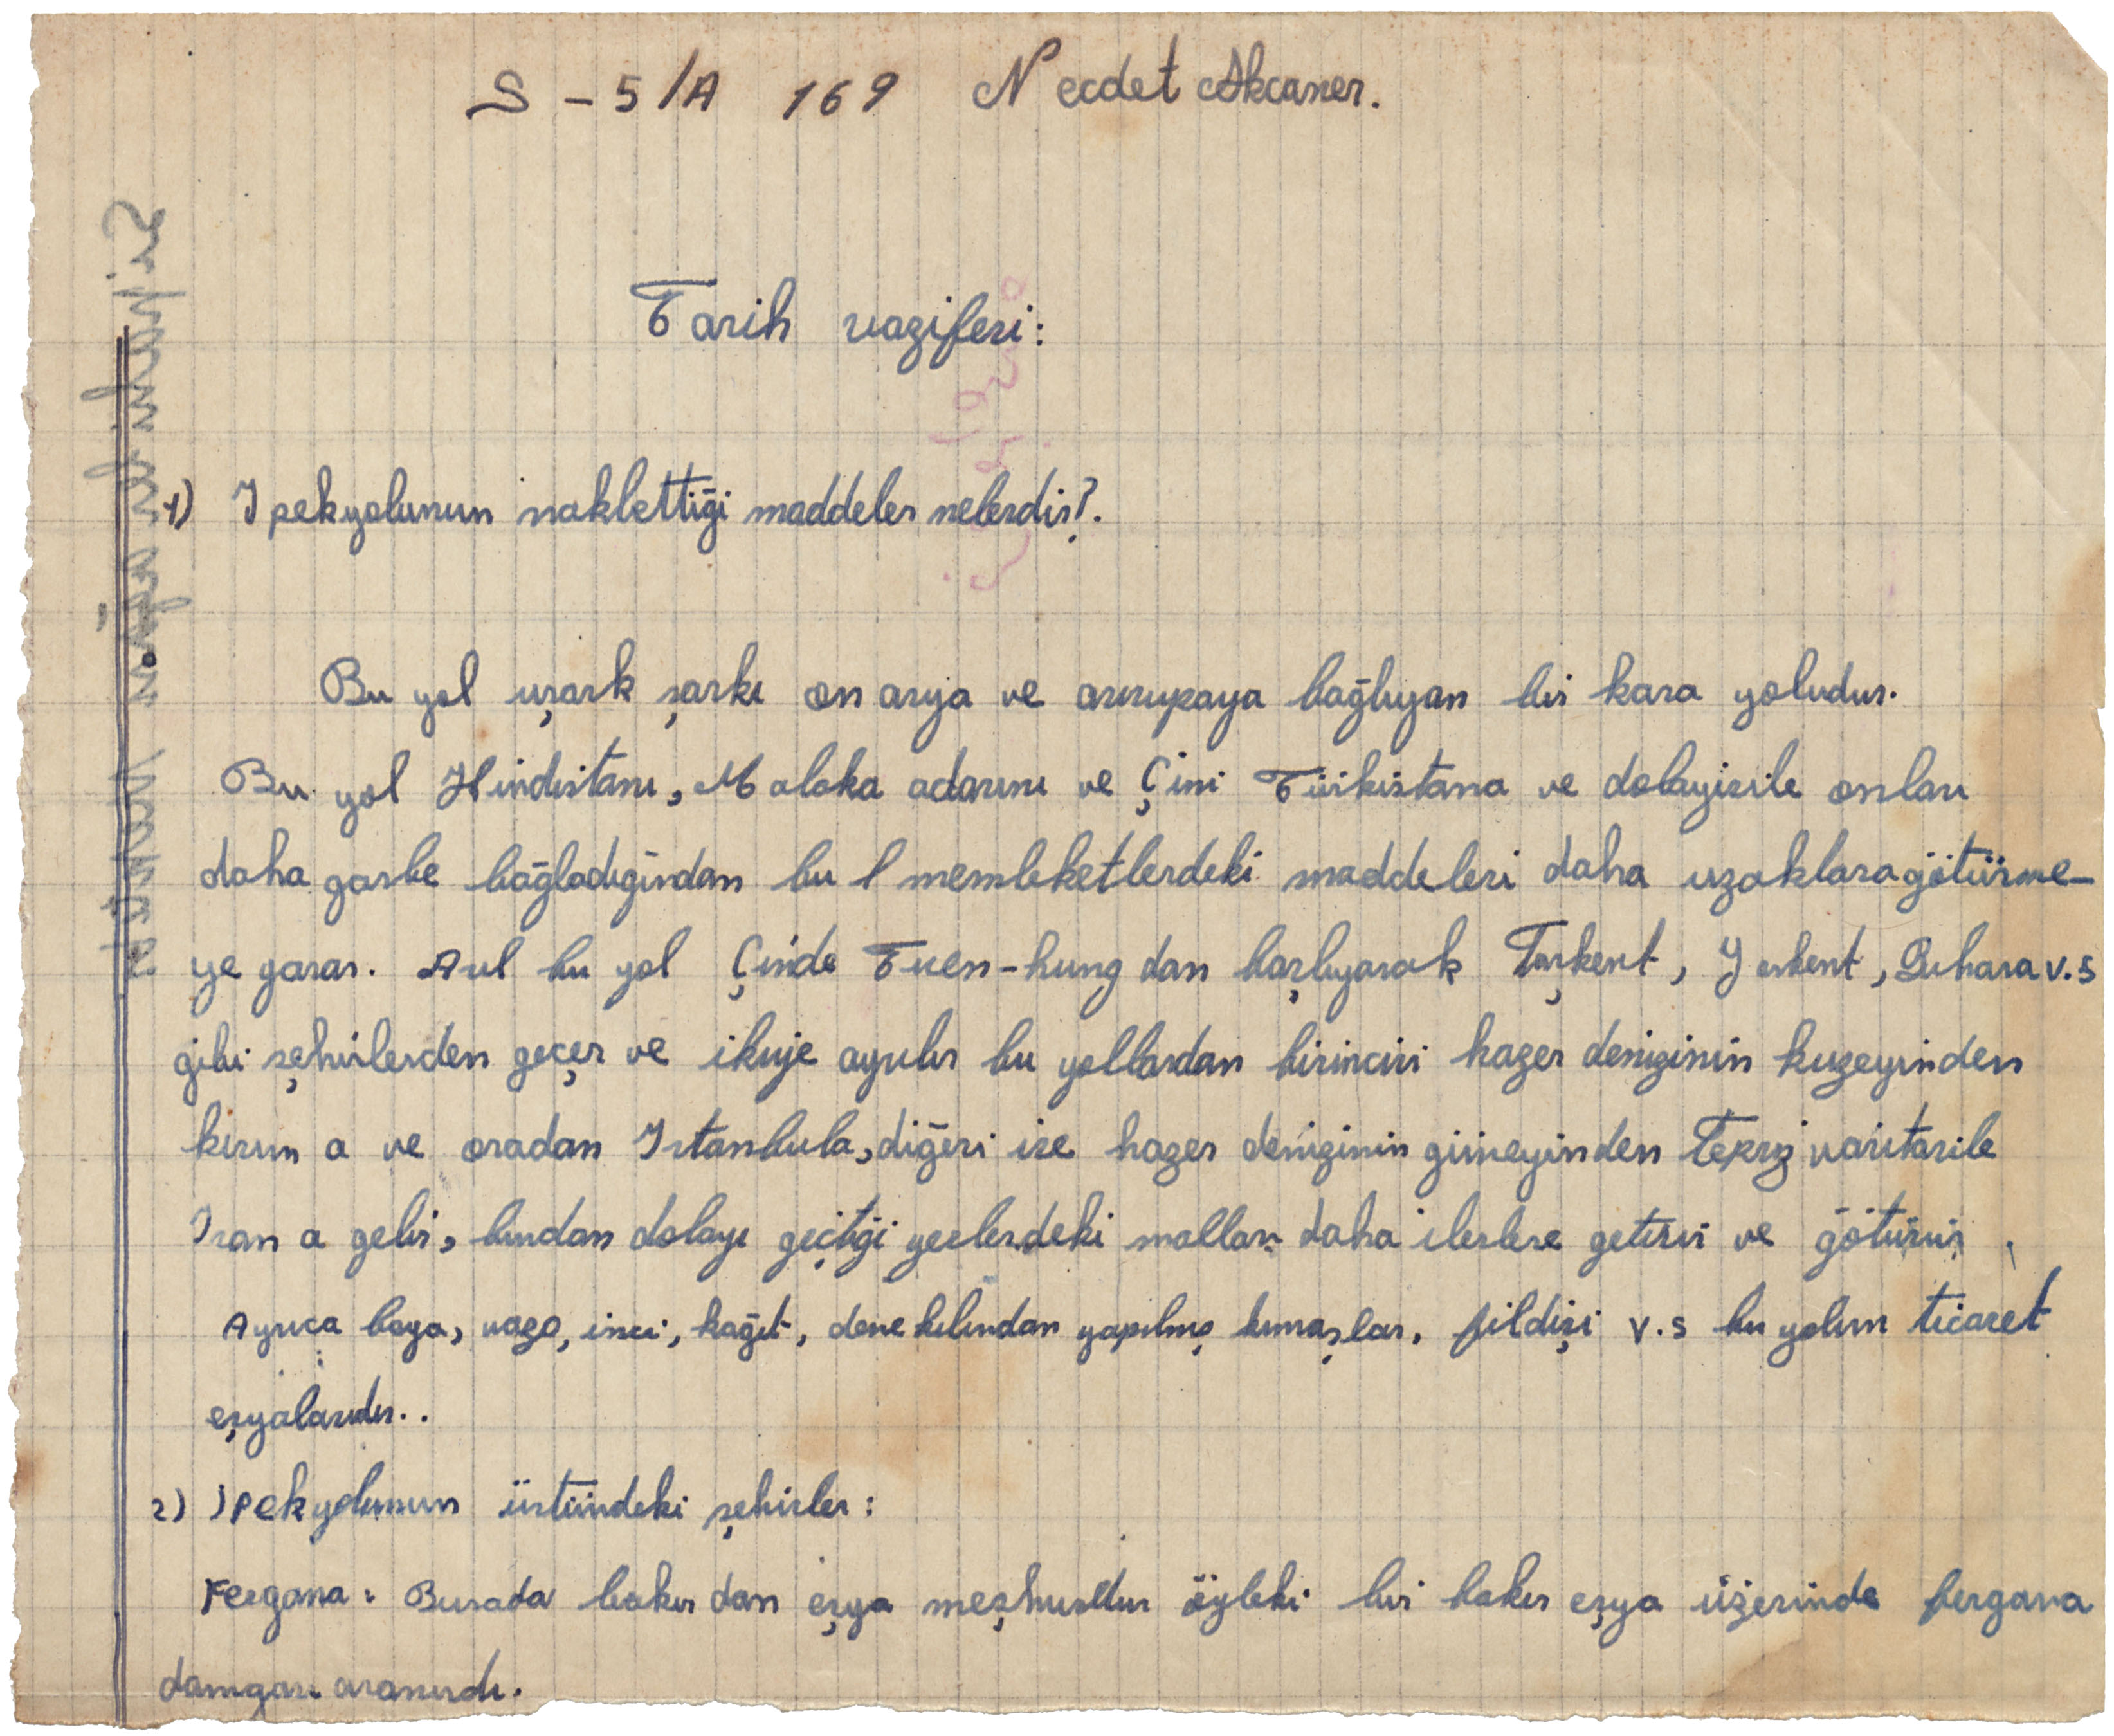 S - 5/A 169 Necdet Akcaner.
Tarih vazifesi:
1) Ipekyolunun naklettiği maddeler nelerdir?.
Bu yol uzark şarkı ön asya ve avrupaya bağlıyan bir kara yoludur.
Bu yol Hindistanı, Malaka adasını ve Çini Türkistana ve dolayisile onları
daha garbe bağladığından bu memleketlerdeki maddeleri daha uzaklara götürme-
ye yarar. Asıl bu yol Çinde Tuen-hung dan başlıyarak Taşkent, Yarkent, Buhara v.s
gibi şehirlerden geçer ve ikiye ayrılır bu yollardan birincisi hazer denizinin kuzeyinden
kırım a ve oradan Istanbula, diğeri ise hazer denizinin güneyinden vasıtasile
Iran a gelir, bundan dolayı geçtiği yerlerdeki malları daha ilerlere getirir ve götürür.
Ayrıca boya, vazo, inci, kağıt, deve kılından yapılmış kumaşlar, fildişi v.s bu yolun ticaret
eşyalarıdır..
2) İpekyolunun üstündeki şehirler:
Fergana: Burada bakır dan eşya meşhurdur öyleki bir bakır eşya üzerinde fergana
damgası aranırdı.